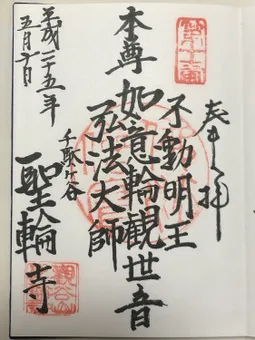 奉拝
不動明王
本尊 如意輪観世音
弘法大師
平成二十五年
五月十日
千駄ヶ谷
聖輪寺